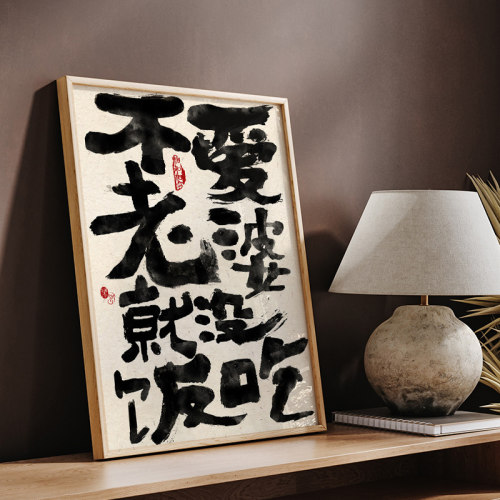 不愛
老婆
就没
饭吃